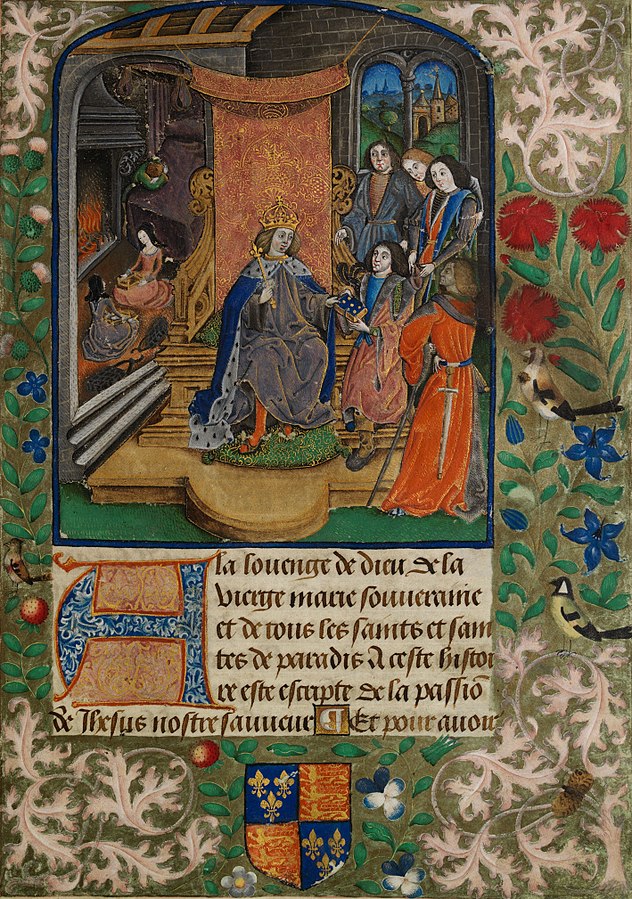 A la louenge de dieu de la
vierge marie souueraine
et de tous les saints et sain
tes de paradis A ceste histoi
re este escripte de la passiō
de Ihesus nostre sauueur Et pour auoir